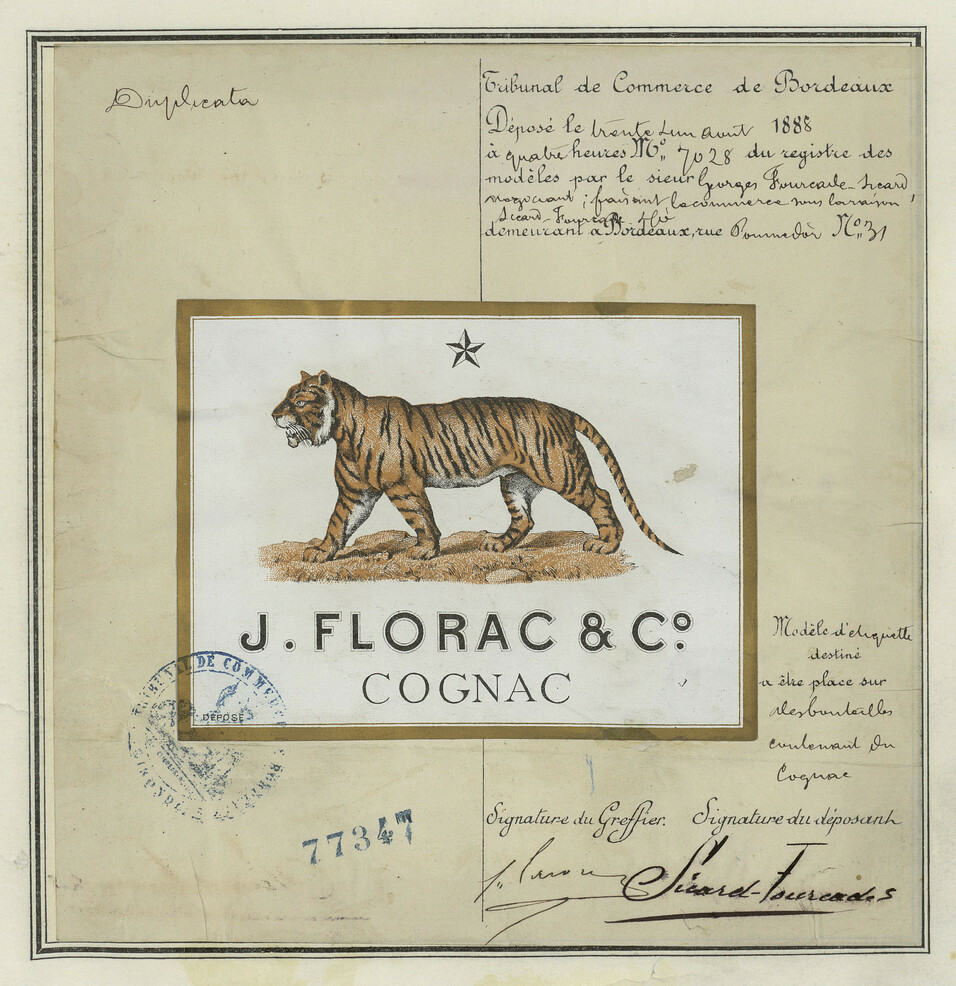 Duplicata
Tribunal de Commerce de Bordeaux
Déposé le trente un aout 1888
à quatre heures No. 7028 du registre des
modèles par le sieur Georges Fourcade-Sicard
negociant; faisant le commerce sous la raison
Sicard-Fourcade
demeurant à Bordeaux, rue Pommedòr No. 31
J. FLORAC & Co.
COGNAC
DÉPOSÉ
TRIBUNAL DE COMMERCE
GIRONDE
Modèle d'etiquette
destiné
a être place sur
des bouteilles
contenant du
Cognac
77347
Signature du Greffier. Signature du déposant
Sicard-Fourcade